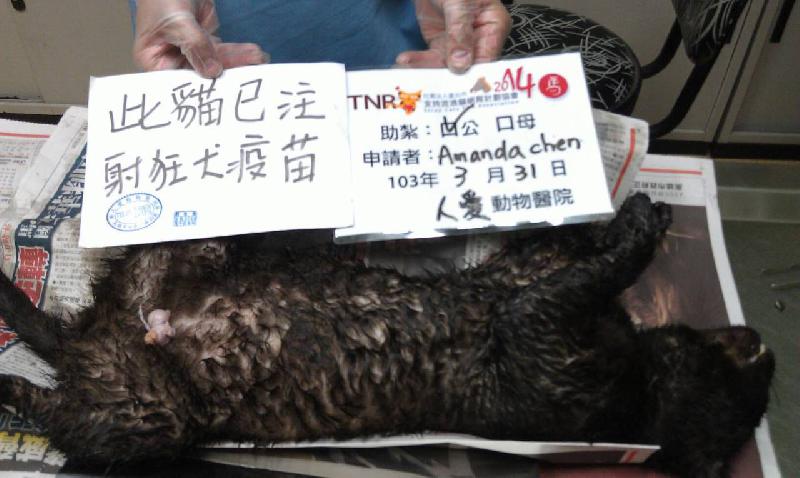 此貓已注
射狂犬疫苗
TNR
2014 馬
助紮：☑公 口母
申請者：Amanda chen
103年 3 月 31 日
人愛動物醫院